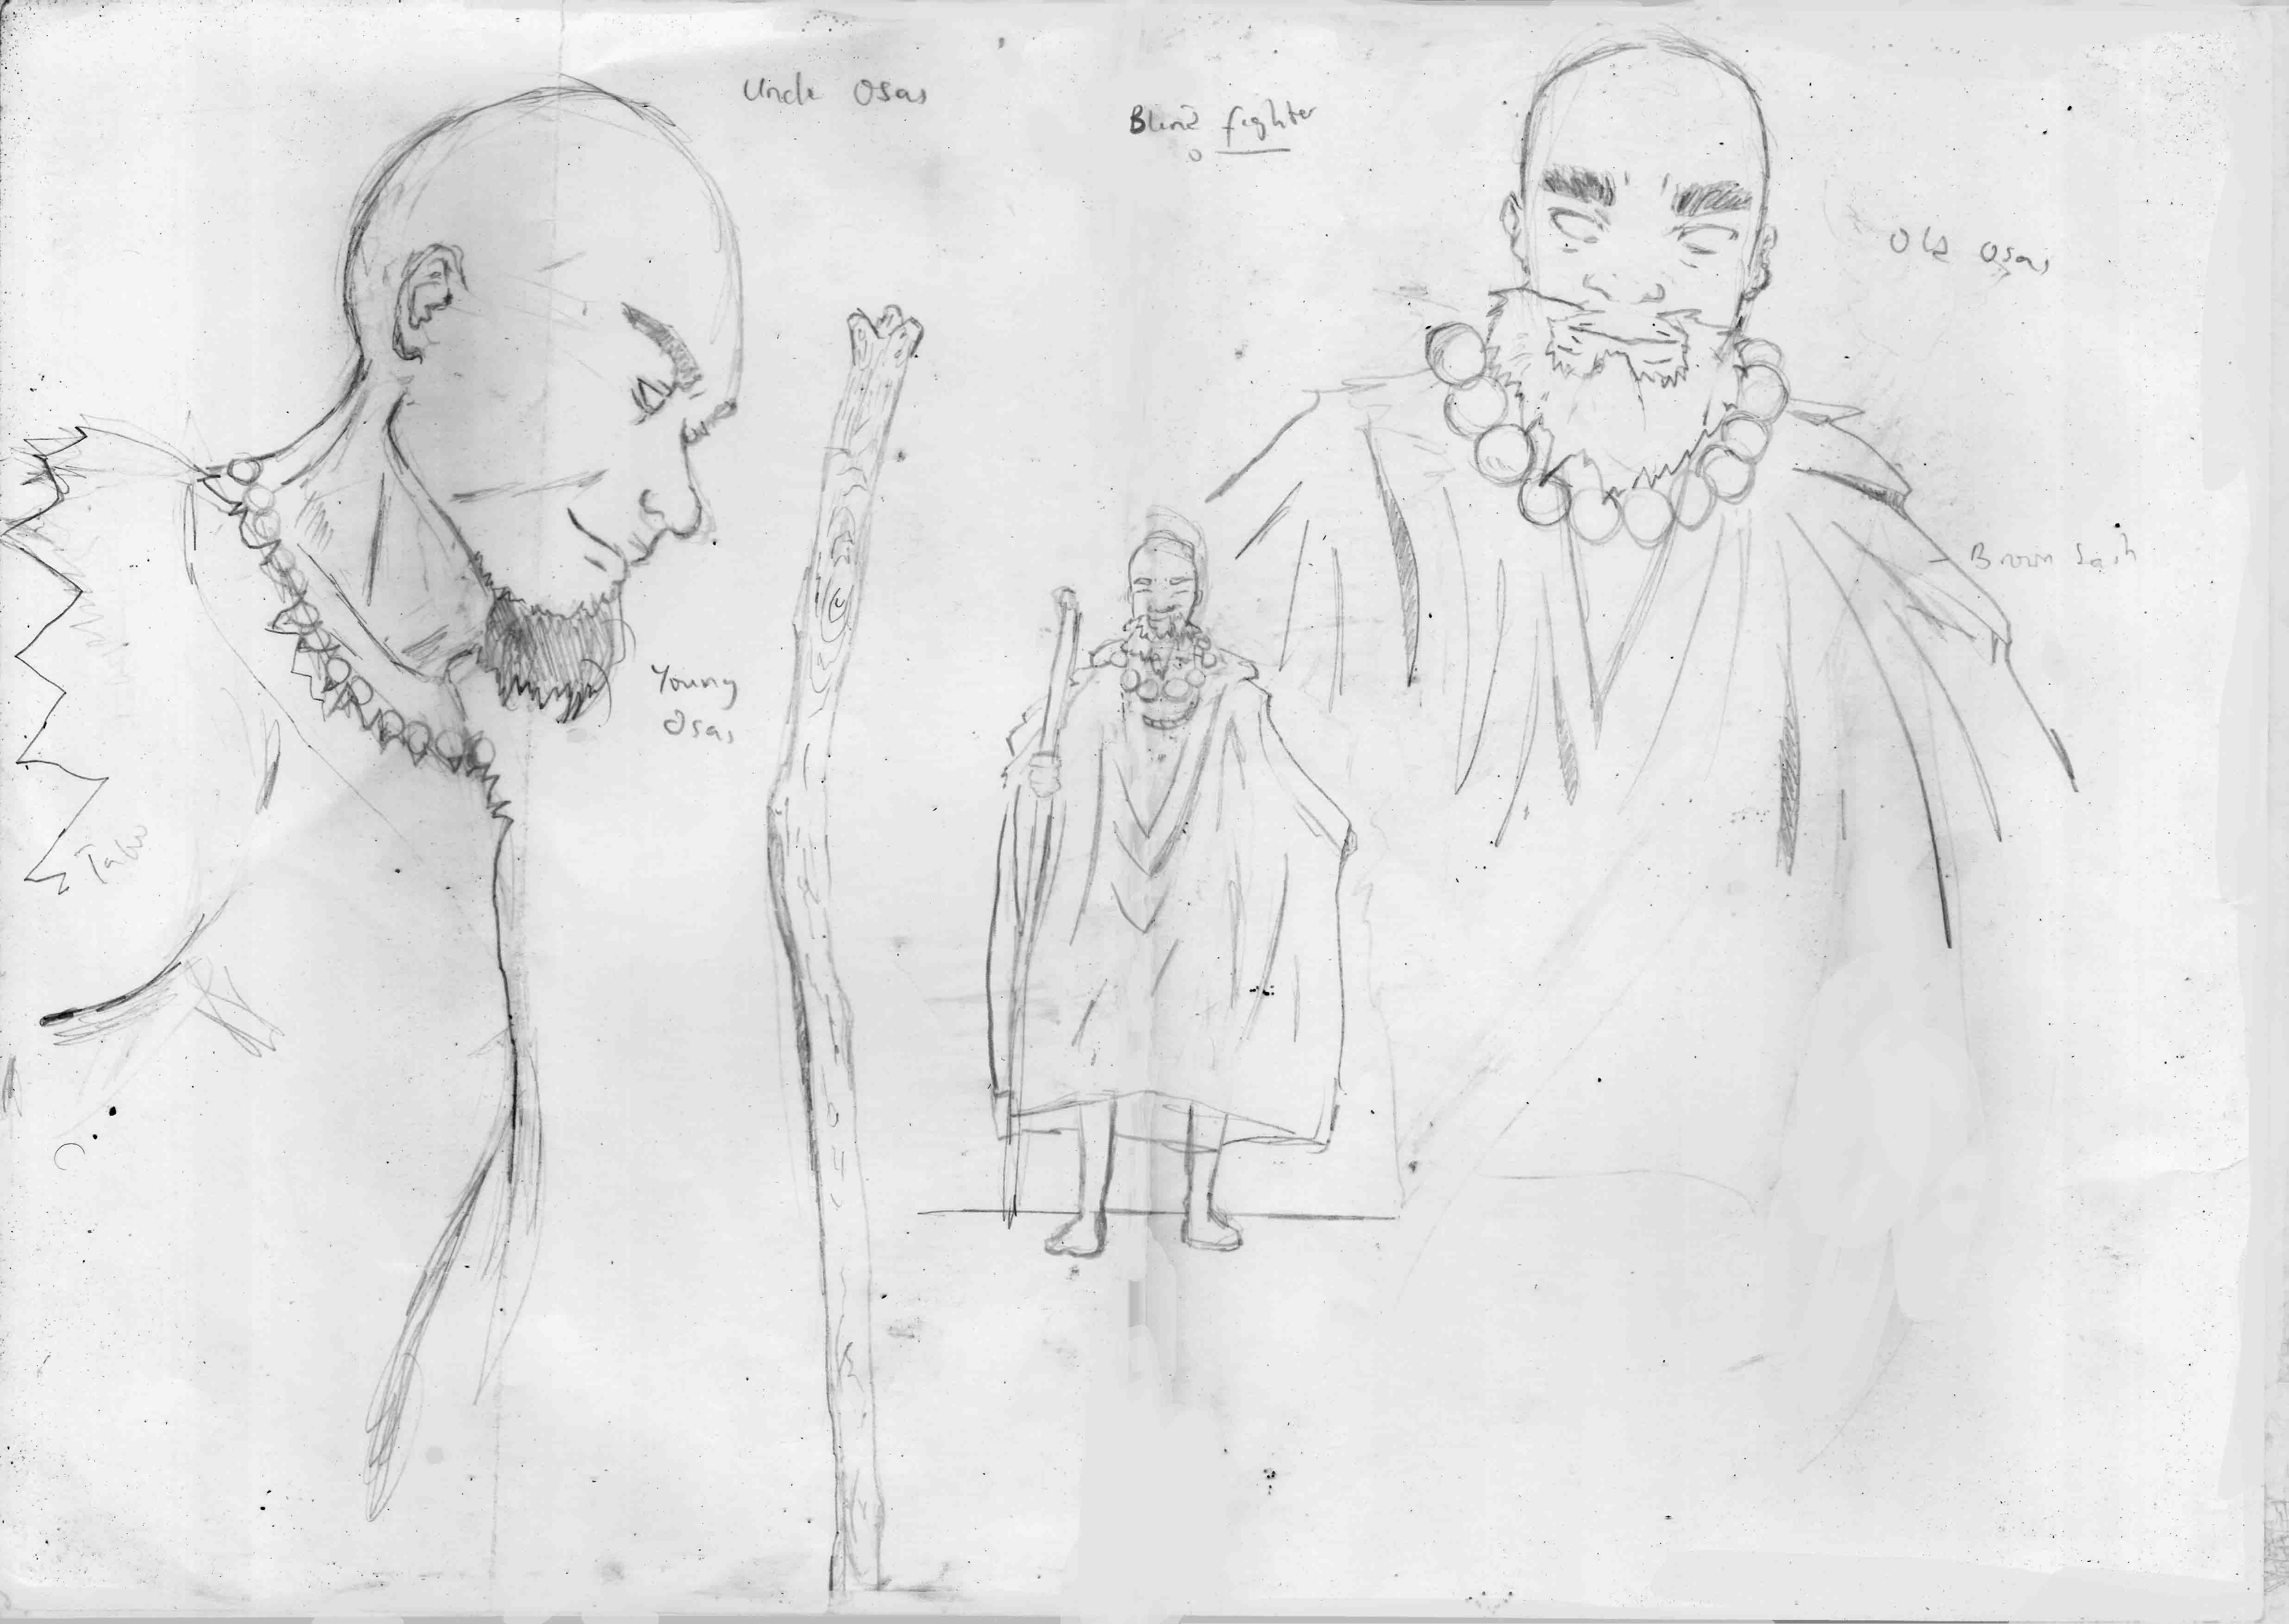 Uncle Osas
Blind fighter
Old Osas
Brown Sash
Young
Osas